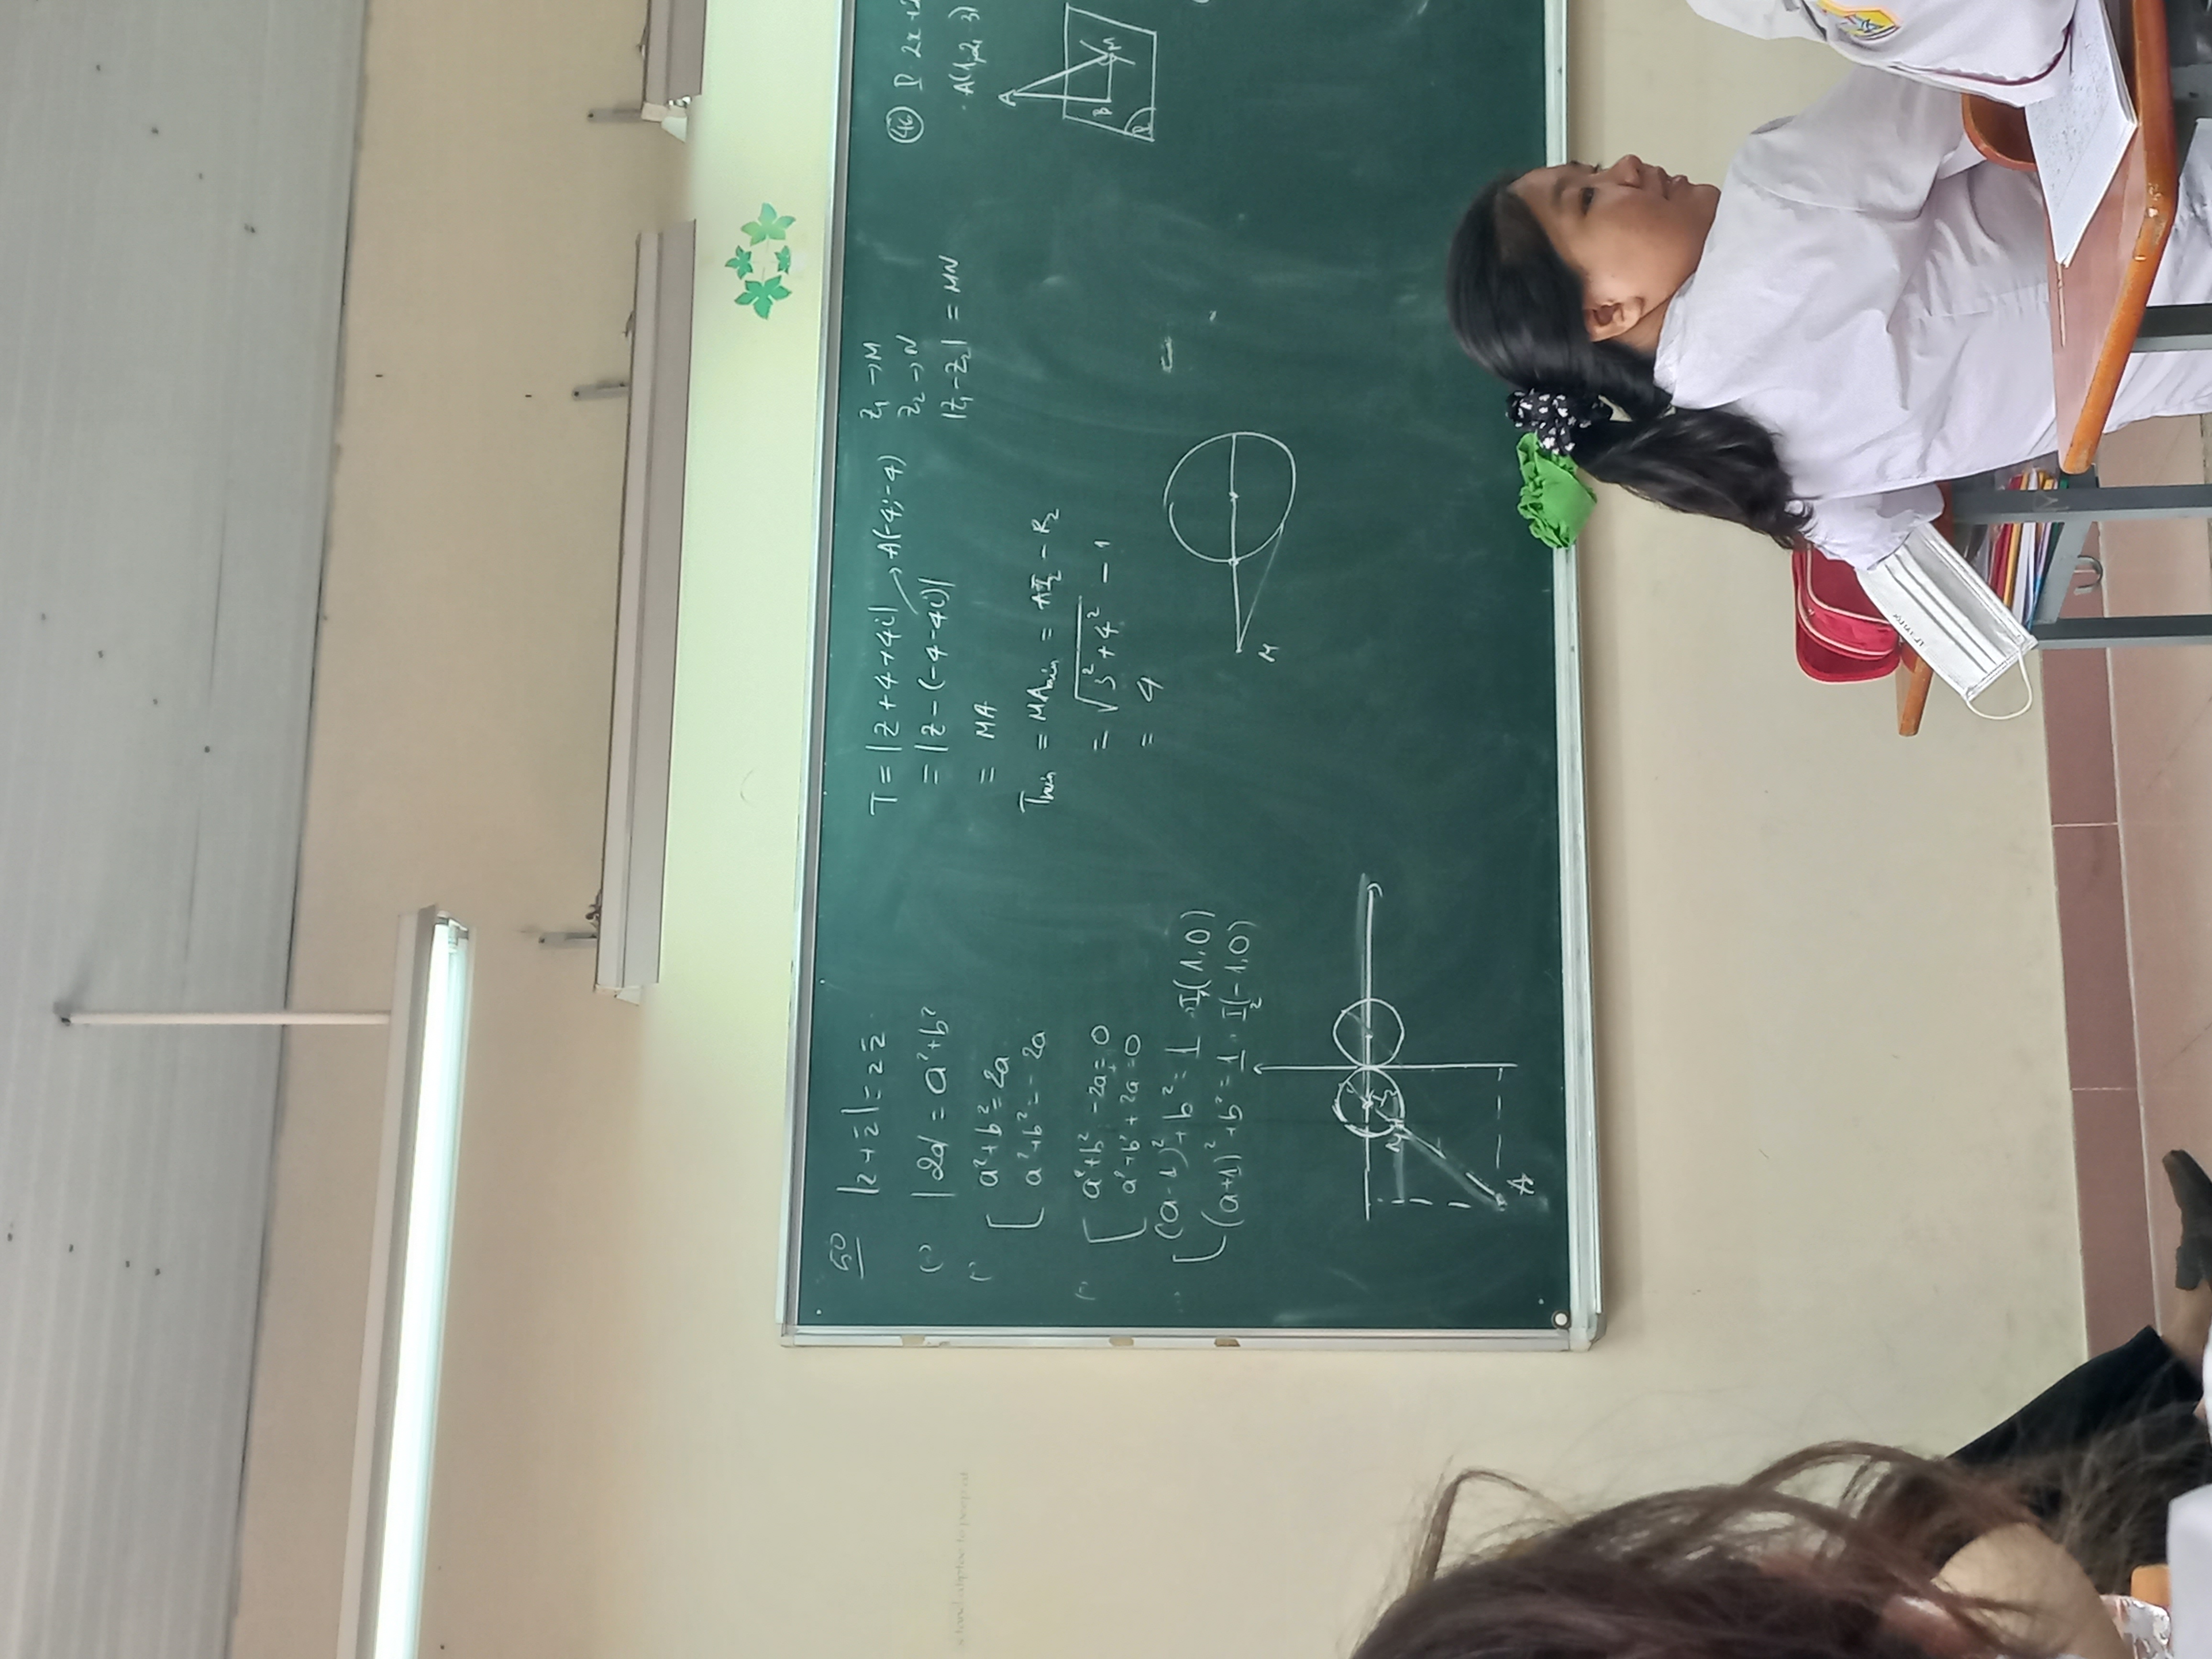 50
|z + z̄| = z z̄
|2a| = a² + b²
a² + b² = 2a
a² + b² = - 2a
a² + b² - 2a = 0
a² + b² + 2a = 0
(a - 1)² + b² = 1 I₁(1, 0)
(a + 1)² + b² = 1 I₂(-1, 0)
I₂
M
A
T = |z + 4 + 4i| → A(-4; -4)
= |z - (-4 - 4i)|
= MA
Tmin = MAmin = AI₂ - R₂
= √(3² + 4²) - 1
= 4
M
z₁ → M
z₂ → N
|z₁ - z₂| = MN
46 P 2x + 2
A(1, 2, 3)
A
B M
P